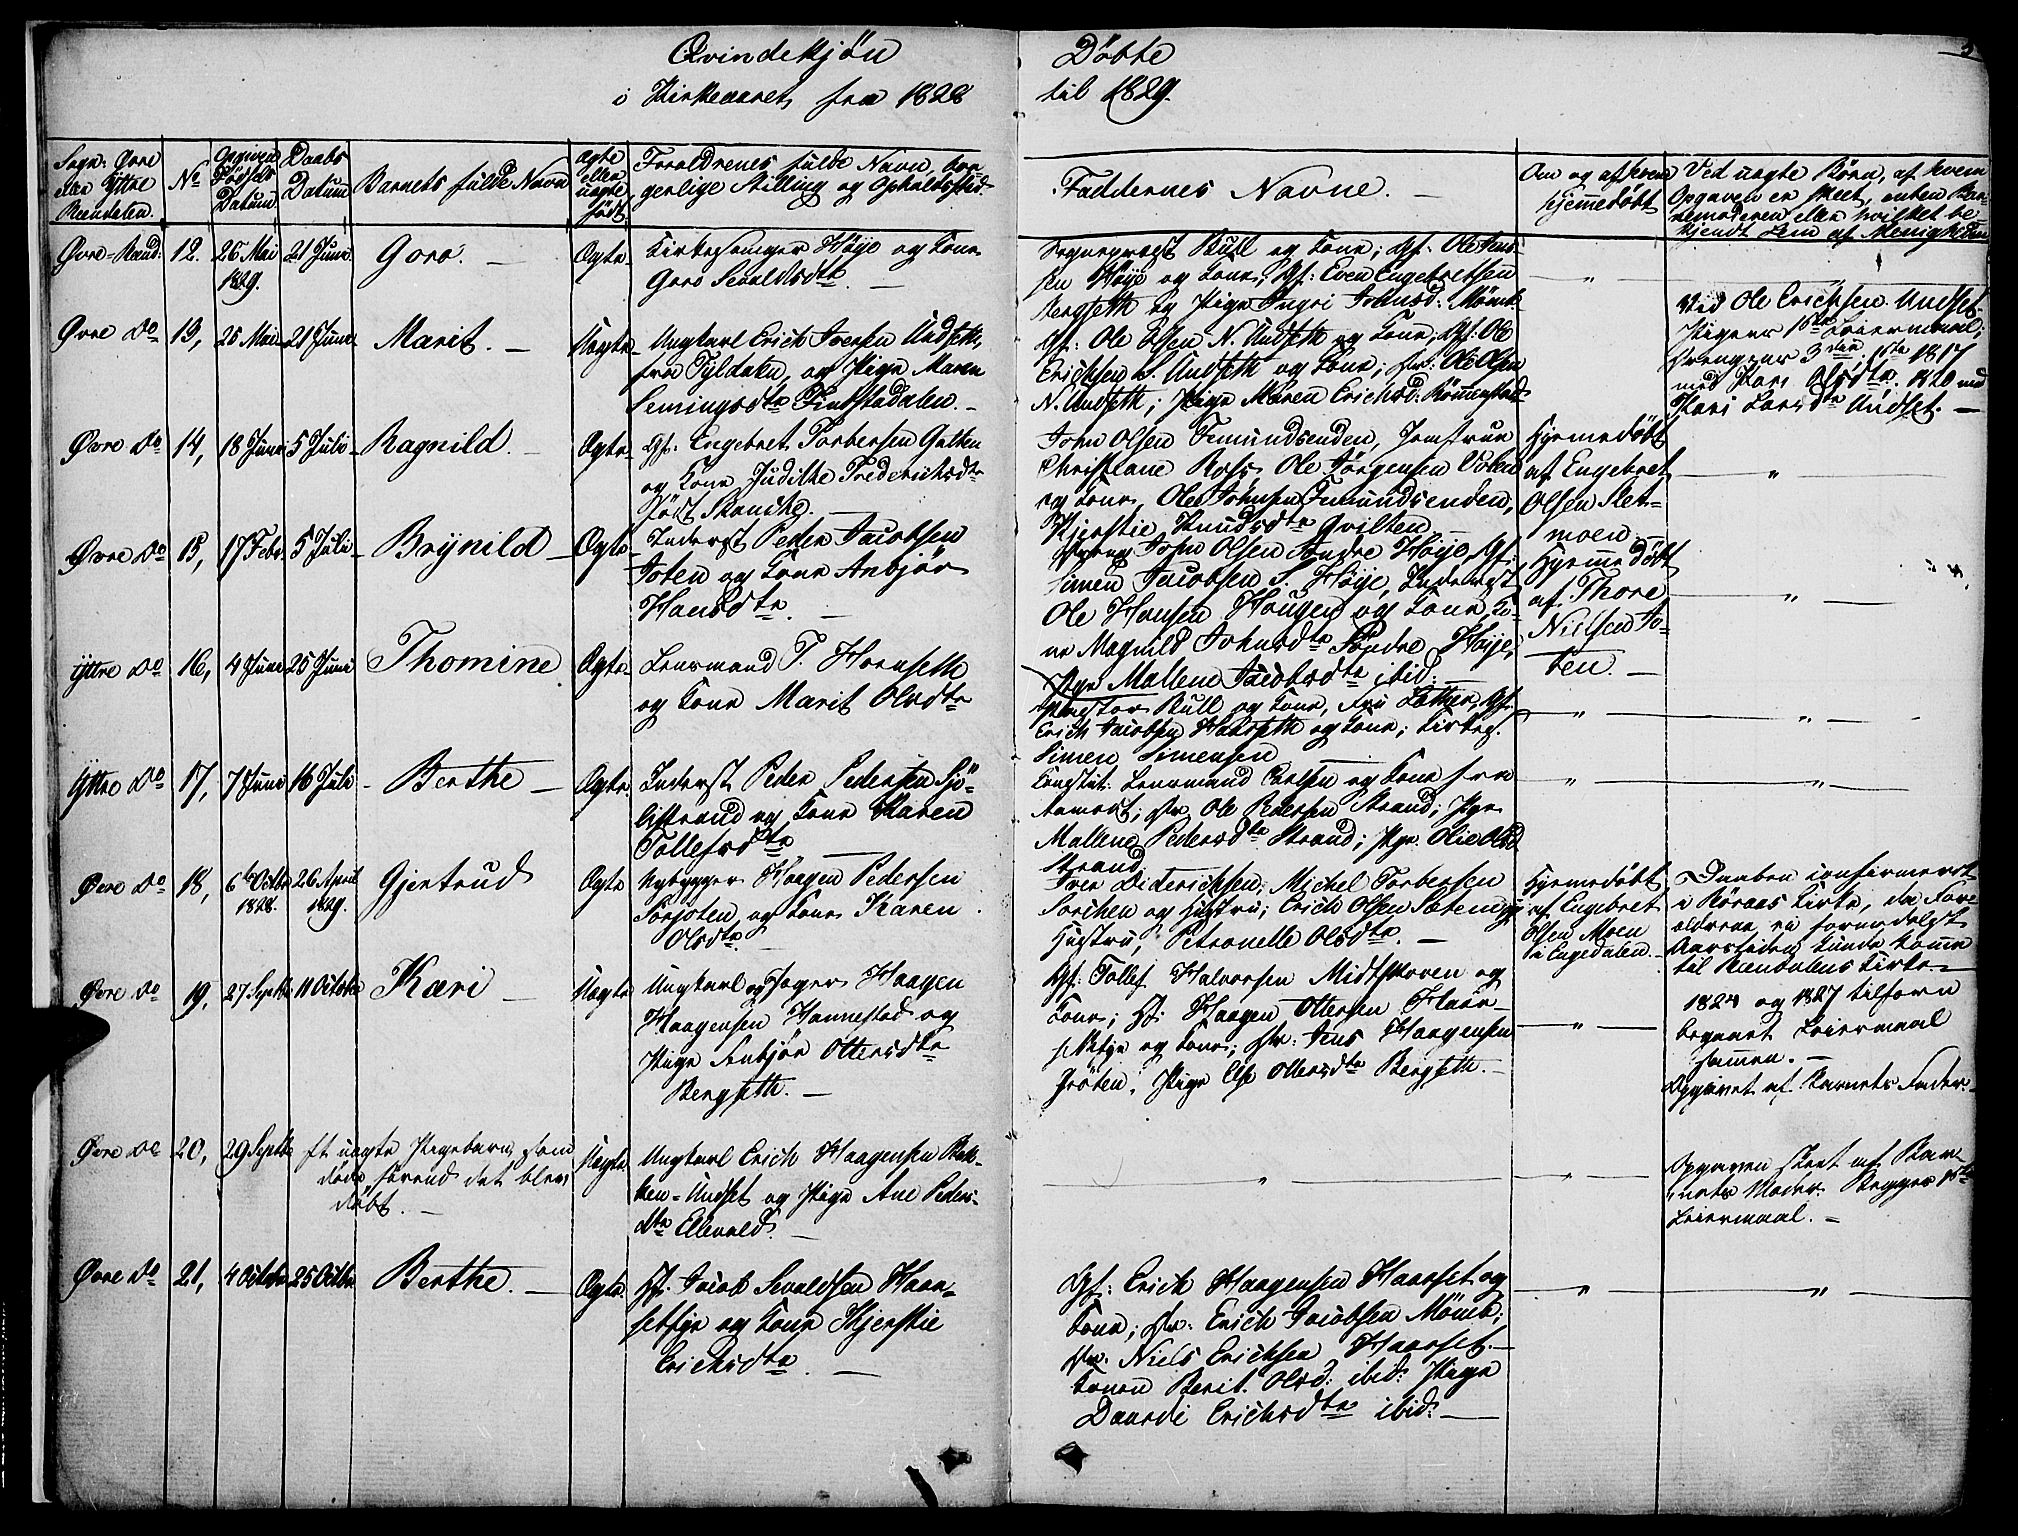 Qvindekjön Döbte
i Kirkeaaret fra 1828 til 1829.
Sogn: Øvre eller Yttre Reendalen.
No
Opgiven Födsels Datum
Daabs Datum
Barnets fulde Navn
Ægte eller uægte födt.
Forældrenes fulde Navn, borgerlige Stilling og Opholdssted.
Faddernes Navne.
Om og af hvem hjemmedöbt
Ved uægte Börn, af hvem Opgaven er skeet, enten Barnemoderen eller hvilket bekjendt Lem af Menigheden
Øvre-Rend. 12. 26 Mai 1829. 21 Juni Goro. Ægte
Kirkesanger Höye og Kone
Goro Sevaldsdtr.
Sogneprest Bull og Kone; Gf: Ole Jensen
Höye og Kone; Gf: Even Engebretsen
Bergseth og Pige Ingri Johnsd: Mömb
Øvre do 13, 25 Mai 21 Juni Marit. Uægte
Ungkarl Erich Iversen Undseth
fra Tyldalen, og Pige Maren
Semingsdtr Finstadalen.
Gf: Ole Olsen N. Undseth og Kone; Gf: Ole
Erichsen S. Undseth og Kone; Dr: Ole Olsen
N. Undseth; Pige Maren Erichsd:
Ved Ole Erichsen Undset.
Pigens 1ste Leiermaal;
Drengens 3die. 1ste 1817
med Kari Olsdtr. 1820 med
Kari Larsdtr Undset.
Øvre do 14, 18 Juni 5 Juli Ragnild. Ægte
Gf: Engebret Torbersen Galten
og Kone Judithe Frederichsdtr
födt Skancke.
John Olsen Femundsenden, Jomfrue
Christiane Ross, Ole Jörgensen Volen
og Kone, Ole Johnsen Femundsenden,
Kjerstie Knudsdtr Qvilten
Hjemmedöbt af Engebret Olsen Sletmoen.
Øvre do 15, 17 Febr. 5 Juli Brÿnild Ægte
Inderst Peder Jacobsen
Joten og Kone Anbjör
Hansdtr.
John Olsen Söndre Höye, Gf:
Simen Jacobsen S. Höye, Inderst
Ole Hansen Haugen og Kone, Kone
Magnild Johnsdtr Söndre Höye,
Pige Mallene Jacobsdtr ibid:
Hjemmedöbt af Thore Nielsen Joten.
Yttre do 16, 4 Juni 25 Juni Thomine Ægte
Lensmand T. Hornseth
og Kone Marit Olsdtr
Pastor Bull og Kone, Fru Lother, Gf:
Erich Jacobsen Haarseth og Kone; Kirkes.
Simen Simensen
Yttre do 17, 7 Juni 16 Juli Berthe Ægte
Inderst Peder Pedersen Sjölistrand
og Kone Karen
Tollefsdtr
Constit: Lensmand Carlsen og Kone fra
Aamodt; Dr: Ole Pedersen Strand; Pige
Mallene Pedersdtr Strand; Pige Olie Olsd
Strand.
Øvre do 18, 6te Octbr 1828. 26 April 1829. Gjertrud Ægte
Nybygger Haagen Pedersen
Sorjoten, og Kone Karen
Olsdtr.
Iver Diderichsen; Michel Torbersen
Sorthen og Hustru; Erich Olsen Sætermoe
Hustru; Petronelle Olsdtr.
Hjemmedöbt af Engebret Olsen Moen i Engerdalen.
Daaben confirmeret
i Röraas Kirke, da Forældrene
ei formedelst
Aarstiden kunde komme
til Reendalens Kirke
Øvre do 19, 27 Septbr 11 October Kari Uægte
Ungkarl og Jæger Haagen
Haagensen Hannestad og
Pige Anbjör Ottersdtr
Bergseth.
Gf: Tollef Halvorsen Midtskoven og
Kone; Hf: Haagen Ottersen Haarsetkje
og Kone; Dr: Jens Haagensen
Gröten; Pige Else Ottersdtr Bergseth.
1824 og 1827 tilforn
begaaet Leiermaal
sammen.
Opgivet af Barnets Fader
Øvre do 20, 29 Septbr Et uægte Pigebarn, som
döde, förend det blev
döbt. Uægte
Ungkarl Erich Haagensen Bakken-Undset
og Pige Ane Pedersdtr
Ellevold.
Opgaven skeet af Barnets
Moder. Begges 1ste
Leiermaal.
Øvre do 21, 4 October 25 Octbr Berthe. Ægte
Hf: Jacob Sevaldsen Haarsetkje
og Kone Kjerstie
Erichsdtr.
Gf: Erich Haagensen Haarset og
Kone; Dr: Erich Jacobsen Mömb;
Dr: Niels Erichsen Haarset.
Konen Berit Olsd: ibid: Pige
Daardi Erichsdtr ibid: